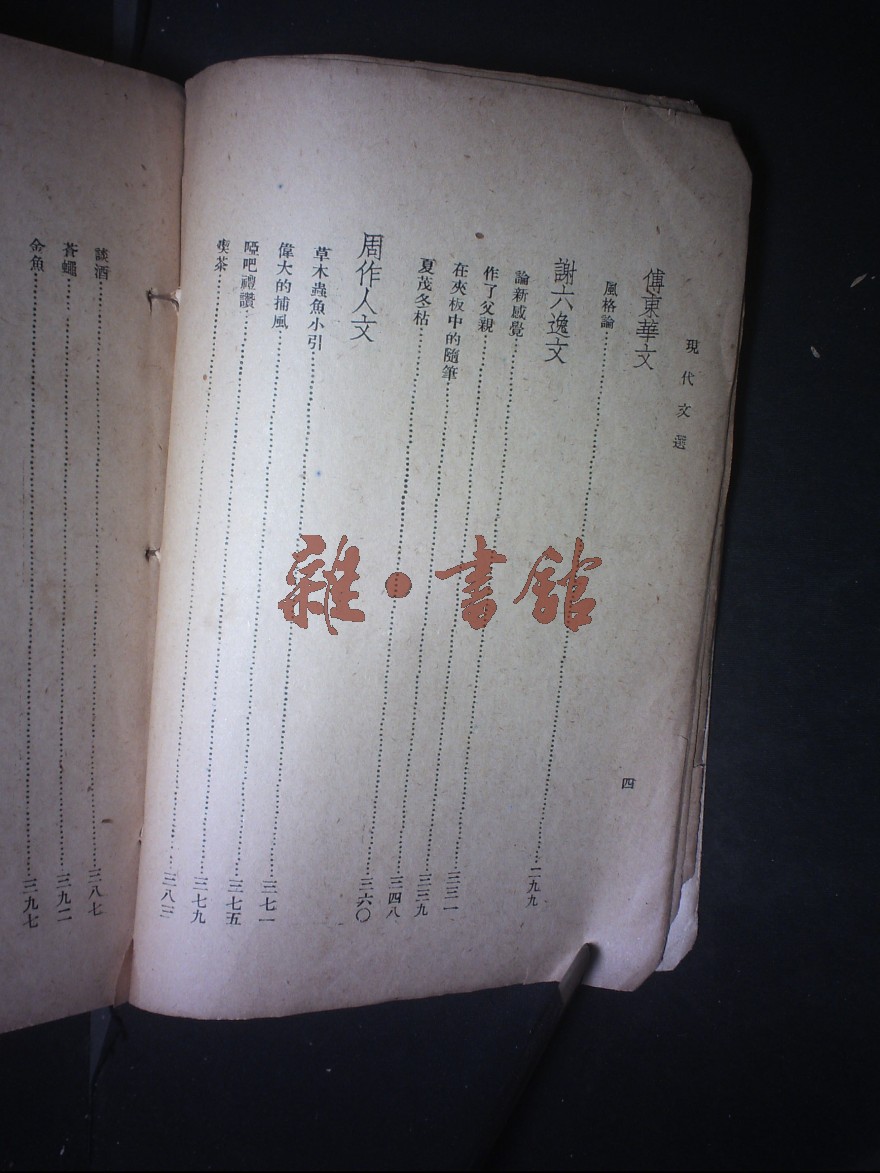 現代文選
四
傅東華文
風格論……二九九
謝六逸文
論新感覺……三三一
作了父親……三三九
在夾板中的隨筆……三四八
夏茂冬枯……三六〇
周作人文
草木蟲魚小引……三七一
偉大的捕風……三七五
啞吧禮讚……三七九
喫茶……三八三
談酒……三八七
蒼蠅……三九二
金魚……三九七
雜·書館